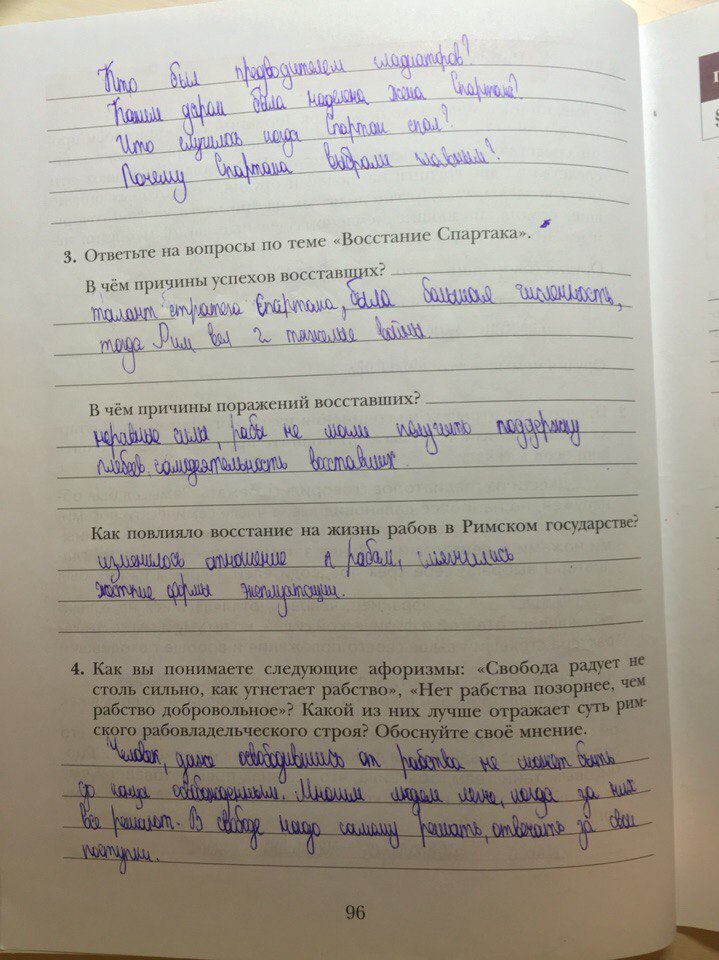 Кто был предводителем гладиаторов?
Каким даром была наделена жена Спартака?
Что случилось когда Спартак спал?
Почему Спартака выбрали главным?
3. Ответьте на вопросы по теме «Восстание Спартака».
В чём причины успехов восставших?
талант стратега Спартака, была большая численность,
тогда Рим вел 2 тяжелые войны.
В чём причины поражений восставших?
неравные силы, рабы не могли получить поддержку
плебеев, самодеятельность восставших.
Как повлияло восстание на жизнь рабов в Римском государстве?
изменилось отношение к рабам, смягчились
жесткие формы эксплуатации.
4. Как вы понимаете следующие афоризмы: «Свобода радует не
столь сильно, как угнетает рабство», «Нет рабства позорнее, чем
рабство добровольное»? Какой из них лучше отражает суть рим-
ского рабовладельческого строя? Обоснуйте своё мнение.
Человек, даже освободившись от рабства не может быть
до конца освобожденным. Многим людям легче, когда за них
все решают. В свободе надо самому решать, отвечать за свои
поступки.
96